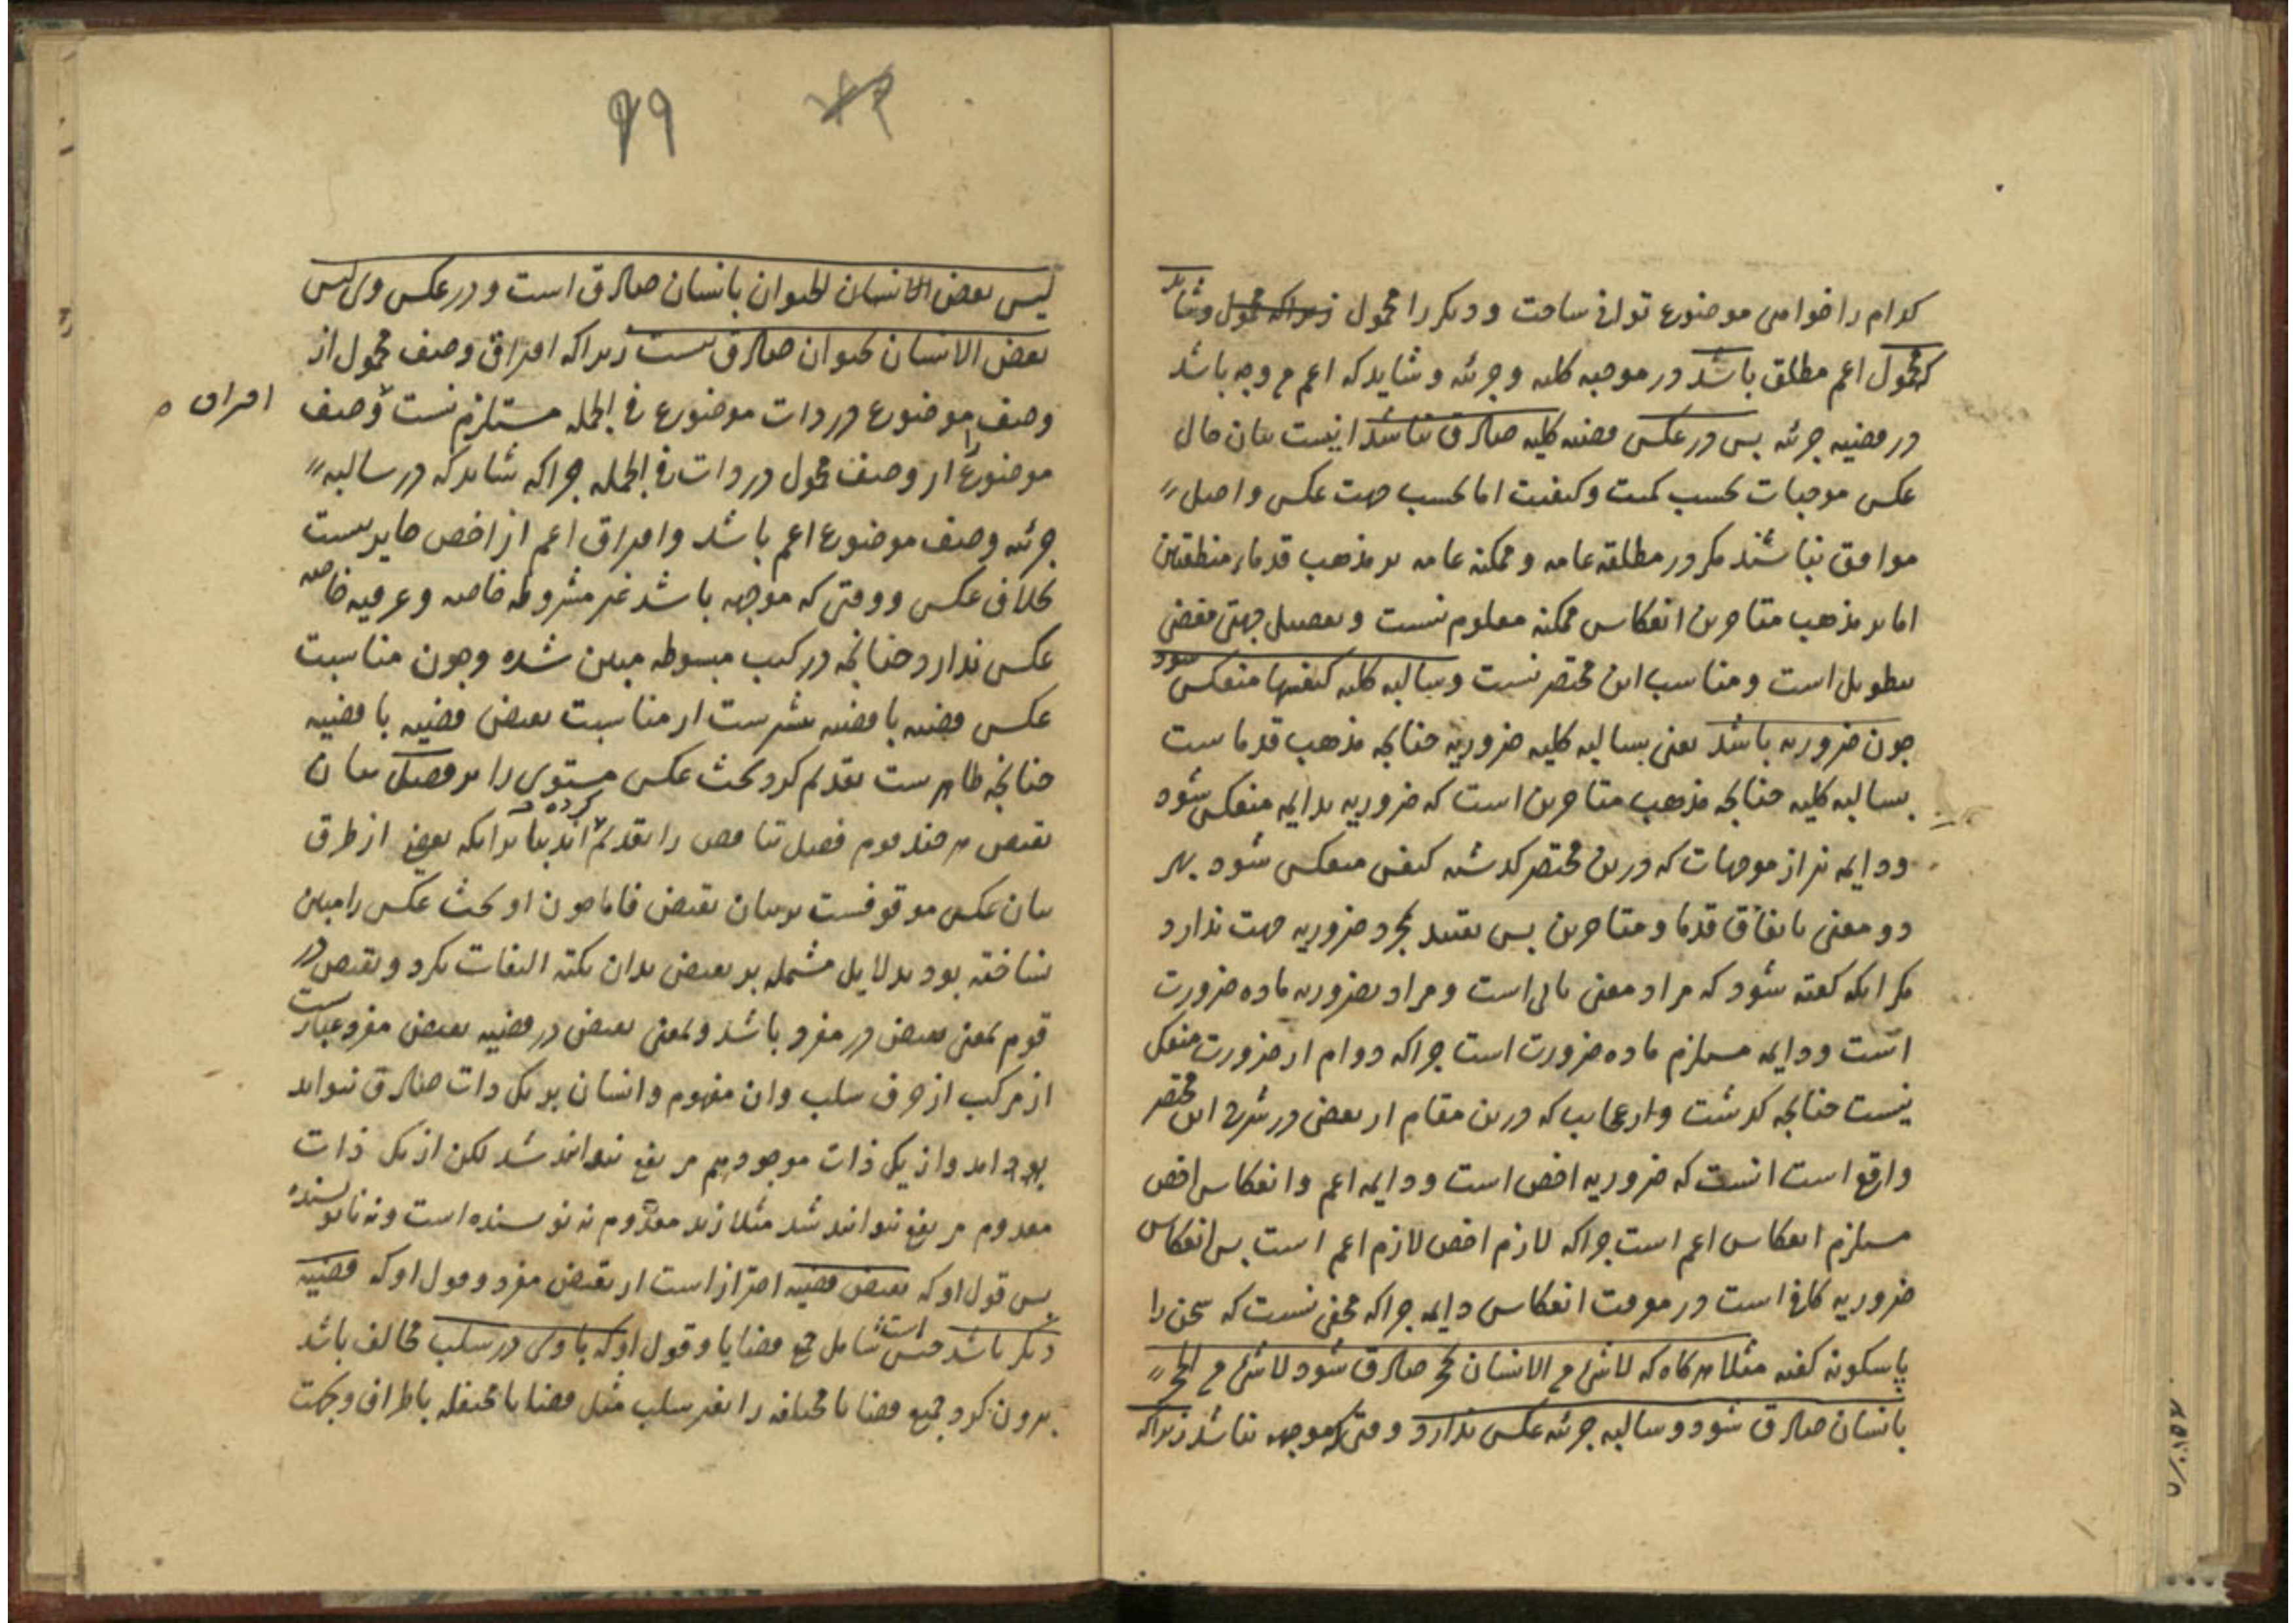 کدام را خواهی موضوع توانی ساخت و دیگر را محمول زیرا که محمول و شاید
که محمول اعم مطلق باشد در موجبه کلیه و جزئیه و شاید که اعم من وجه باشد
در قضیه جزئیه پس در عکس قضیه کلیه صادق نباشد اینست بیان حال
عکس موجبات بحسب کمیت و کیفیت اما بحسب جهت عکس و اصل
موافق نباشند مگر در مطلقه عامه و ممکنه عامه بر مذهب قدماء منطقیین
اما بر مذهب متاخرین انعکاس ممکنه معلوم نیست و تفصیل جهتی مقضی
بتطویل است و مناسب این مختصر نیست و سالبه کلیه کنفسها منعکس شود
چون ضروریه باشد یعنی بسالبه کلیه ضروریه چنانچه مذهب قدماست
بسالبه کلیه چنانچه مذهب متاخرین است که ضروریه بدایمه منعکس شود
و دایمه نیز از موجهات که درین مختصر گذشت کنفس منعکس شود بهر
دو معنی باتفاق قدما و متاخرین پس تقیید بمجرد ضروریه جهت ندارد
مگر آنکه گفته شود که مراد معنی ثانی است و مراد بضروریه ماده ضرورت
است و دایمه مستلزم ماده ضرورت است چرا که دوام از ضرورت منفک
نیست چنانچه گذشت و از عجایب که درین مقام از بعضی در شرح این مختصر
واقع است آنست که ضروریه اخص است و دایمه اعم و انعکاس اخص
مستلزم انعکاس اعم است چرا که لازم اخص لازم اعم است پس انعکاس
ضروریه کافی است در معرفت انعکاس دایمه چرا که مخفی نیست که سخن را
باسکونه گفته مثلا هرگاه که لا شئ من الانسان بحجر صادق شود لا شئ من الحجر
بانسان صادق شود و سالبه جزئیه عکس ندارد وقتی که موجهه نباشد زیرا که
۷۹
لیس بعض الحیوان بانسان صادق است و در عکس وی لیس
بعض الانسان بحیوان صادق نیست زیرا که افتراق وصف محمول از
وصف موضوع در ذات موضوع فی الجمله مستلزم نیست وصف
افتراق
موضوع را از وصف محمول در ذات فی الجمله چرا که شاید که در سالبه
جزئیه وصف موضوع اعم باشد و افتراق اعم از اخص جایز است
بخلاف عکس و وقتی که موجهه باشد غیر مشروطه خاصه و عرفیه خاصه
عکس ندارد چنانچه در کتب مبسوطه مبین شده و چون مناسبت
عکس قضیه با قضیه بیشتر است از مناسبت نقیض قضیه با قضیه
چنانچه ظاهر است تقدیم کرد بحث عکس مستوی را بر فصل بیان
نقیض هر چند قوم فصل تناقض را تقدیم کرده اند بنا بر آنکه بعضی از طرق
بیان عکس موقوفست بر بیان نقیض فاما چون او بحث عکس را مبین
نساخته بود بدلایل مشتمله بر نقیض بدان نکته التفات نکرد و نقیض در
قوم بمعنی نقیض در مفرد باشد و بمعنی نقیض در قضیه نقیض مفرد عبارتست
از مرکب از حرف سلب و آن مفهوم و انسان بر یک ذات صادق نتواند
بود و از یک ذات موجود هم مرتفع نتوانند شد لکن از یک ذات
معدوم مرتفع نتوانند شد مثلا زید معدوم نه نویسنده است و نه نانویسنده
پس قول او که نقیض قضیه احتراز است از نقیض مفرد و قول او که قضیه
دیگر باشد جنس است شامل جمیع قضایا و قول او که با وی در سلب مخالف باشد
بیرون کرد جمیع قضایا مختلفه را بغیر سلب مثل قضایا مختلفه باطراف و بجهت